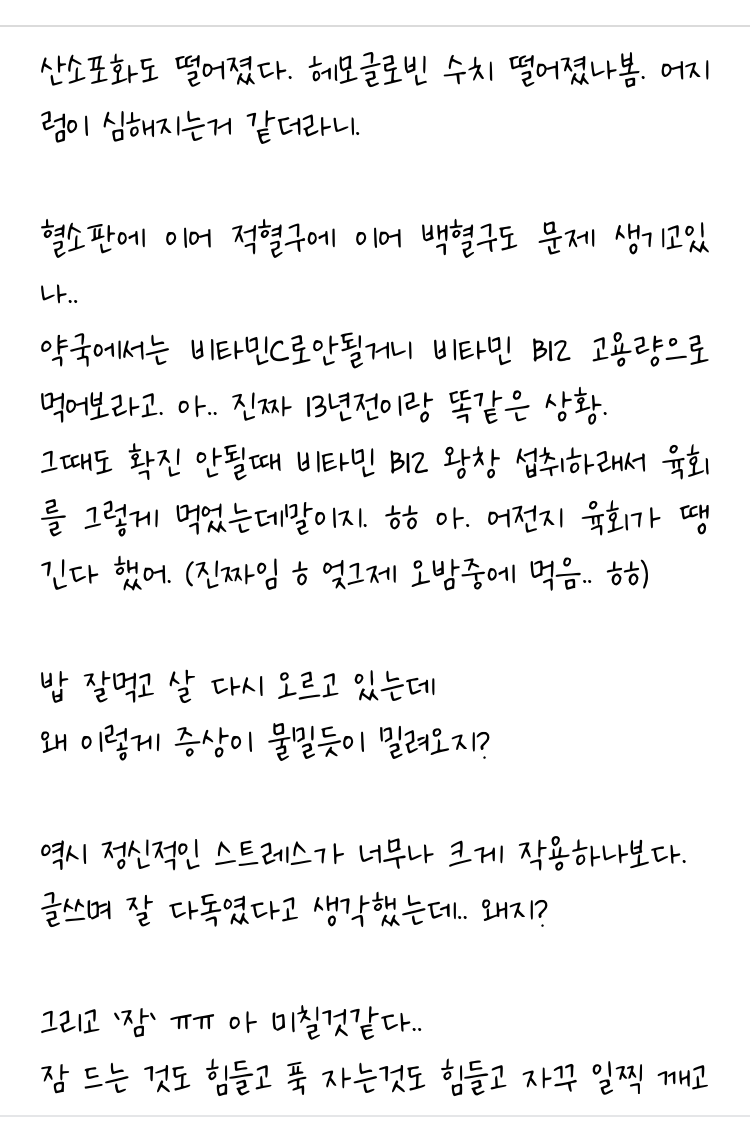 산소포화도 떨어졌다. 헤모글로빈 수치 떨어졌나봄. 어지
럼이 심해지는거 같더라니.
혈소판에 이어 적혈구에 이어 백혈구도 문제 생기고있
나..
약국에서는 비타민C로안될거니 비타민 B12 고용량으로
먹어보라고. 아.. 진짜 13년전이랑 똑같은 상황.
그때도 확진 안될때 비타민 B12 왕창 섭취하래서 육회
를 그렇게 먹었는데말이지. ㅎㅎ 아. 어전지 육회가 땡
긴다 했어. (진짜임 ㅎ 엊그제 오밤중에 먹음.. ㅎㅎ)
밥 잘먹고 살 다시 오르고 있는데
왜 이렇게 증상이 물밀듯이 밀려오지?
역시 정신적인 스트레스가 너무나 크게 작용하나보다.
글쓰며 잘 다독였다고 생각했는데.. 왜지?
그리고 `잠` ㅠㅠ 아 미칠것같다..
잠 드는 것도 힘들고 푹 자는것도 힘들고 자꾸 일찍 깨고